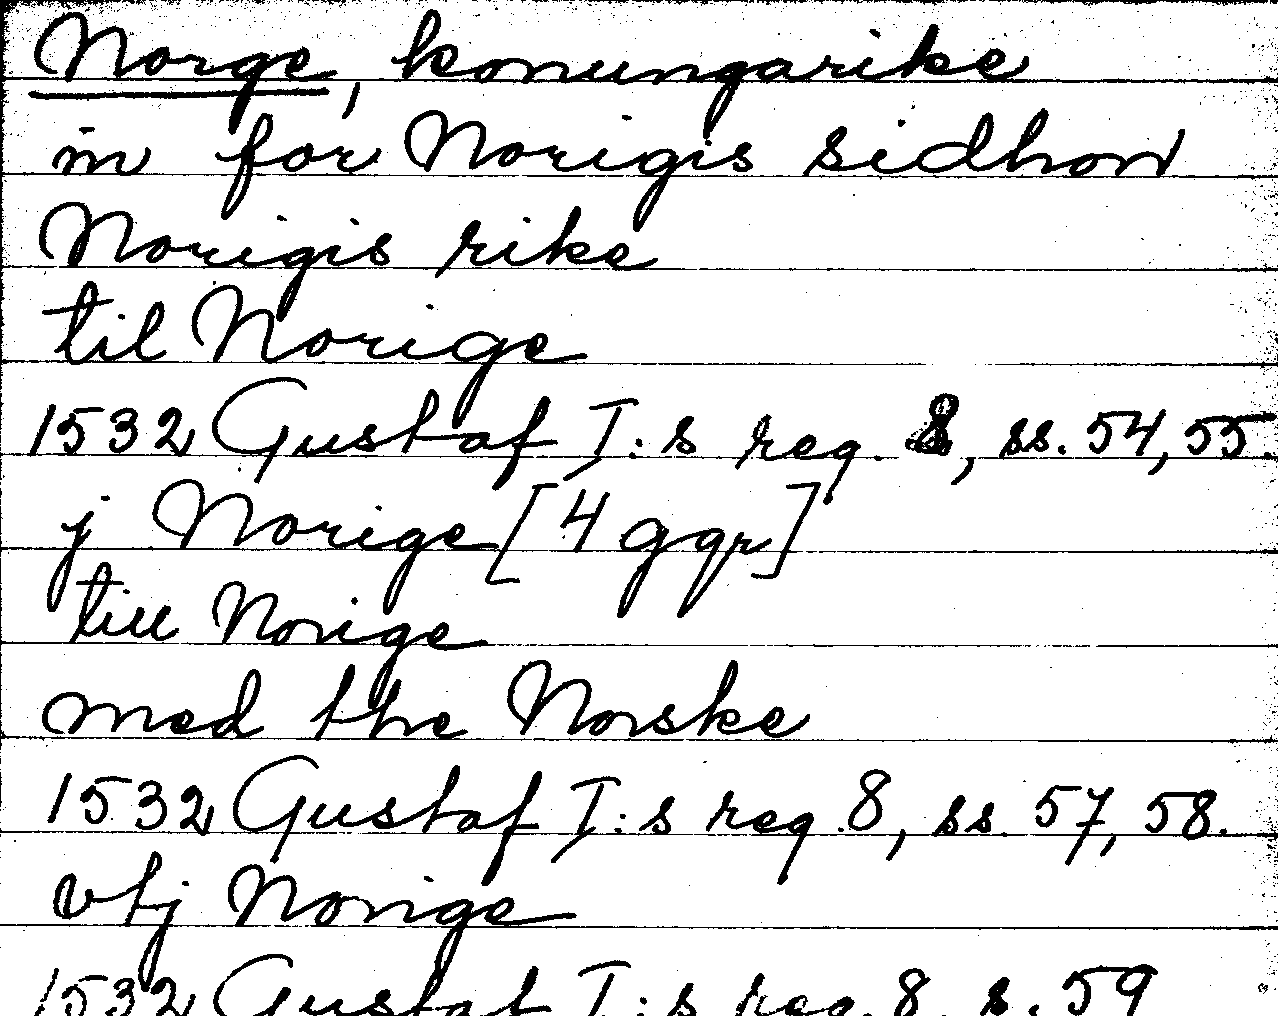 Norge, konungarike
in for Norigis sidhon
Norigis rike
til Norige
1532 Gustaf I:s reg. 8, ss. 54, 55.
j Norige [4 ggr]
till Norige
med the Norske
1532 Gustaf I:s reg. 8, ss. 57, 58.
vtj Norige
1532 Gustaf I:s reg. 8, s. 59